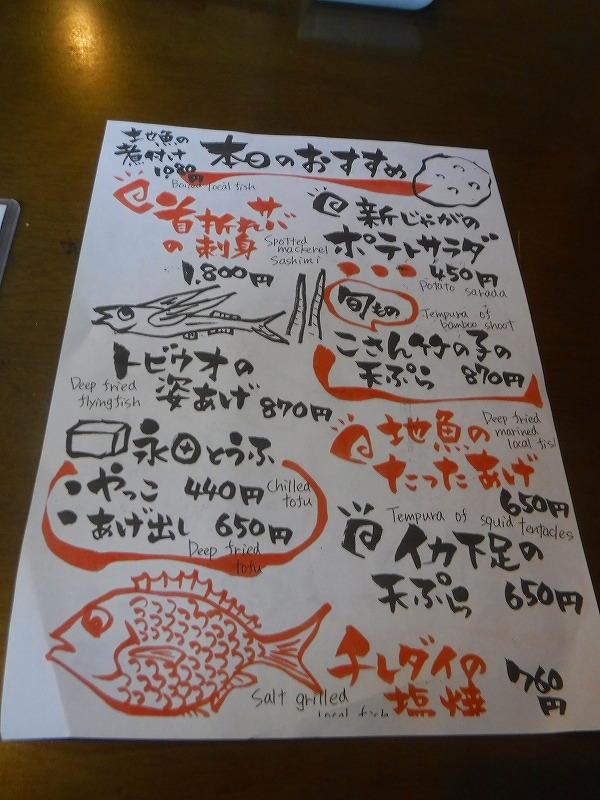 地魚の
煮付け
1,080円
Boiled local fish
本日のおすすめ
首折れサバ
の刺身
Spotted
mackerel
Sashimi
1,800円
新じゃがの
ポテトサラダ
450円
Potato sarada
旬もの
Tempura of
bamboo shoot
こさん竹の子の
天ぷら 870円
トビウオの
姿あげ 870円
Deep fried
flyingfish
永田とうふ
・やっこ 440円
Chilled
tofu
・あげ出し 650円
Deep fried
tofu
地魚の
たったあげ
Deep fried
marined
local fis
650円
Tempura of squid tentacles
イカ下足の
天ぷら 650円
チレダイの
塩焼
760円
Salt grilled
local fish